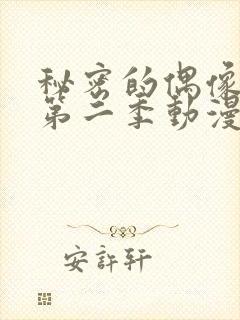 秘密的偶像
第二季動漫
安許軒